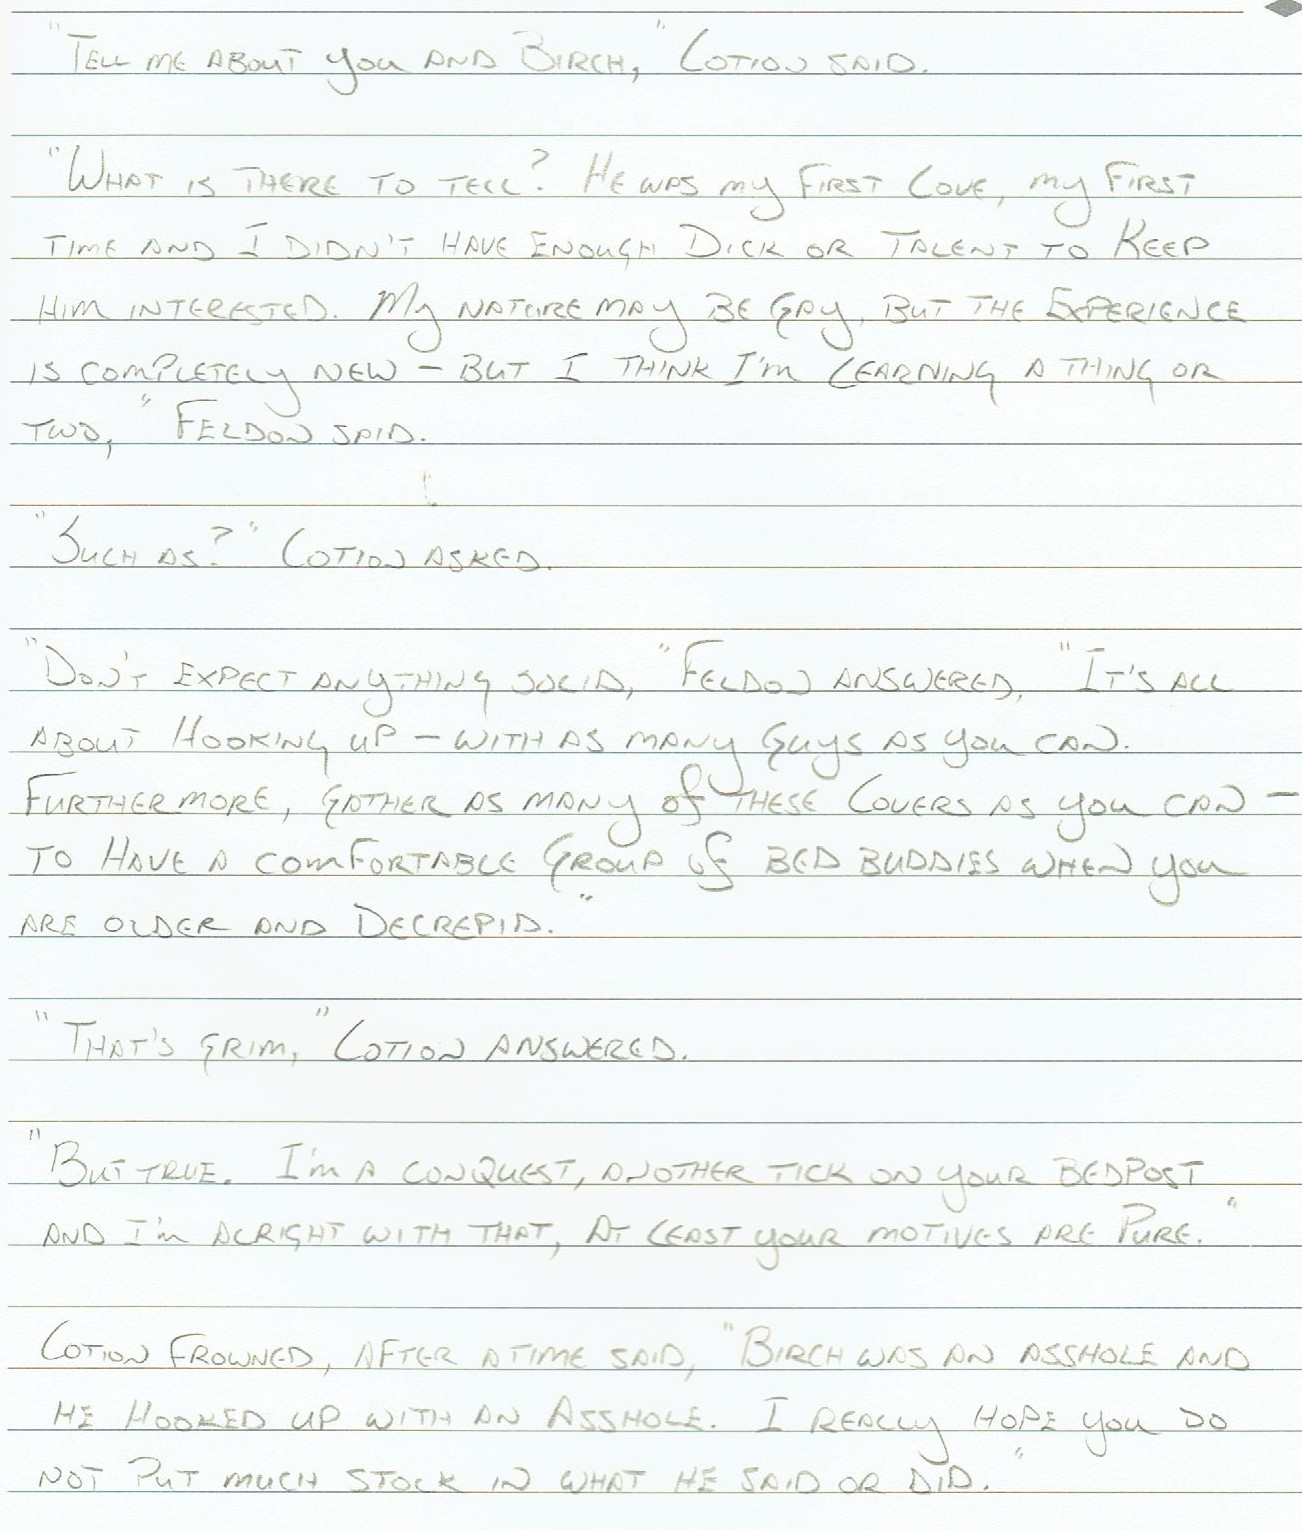 "Tell me about you and Birch," Lotion said.
"What is there to tell? He was my first love, my first
time and I didn't have enough dick or talent to keep
him interested. My nature may be gay, but the experience
is completely new - but I think I'm learning a thing or
two," Feldon said.
"Such as?" Lotion asked.
"Don't expect anything solid," Feldon answered, "It's all
about hooking up - with as many guys as you can.
Furthermore, gather as many of these lovers as you can -
to have a comfortable group of bed buddies when you
are older and decrepid."
"That's grim," Lotion answered.
"But true. I'm a conquest, another tick on your bedpost
and I'm alright with that, at least your motives are pure."
Lotion frowned, after a time said, "Birch was an asshole and
he hooked up with an asshole. I really hope you do
not put much stock in what he said or did."